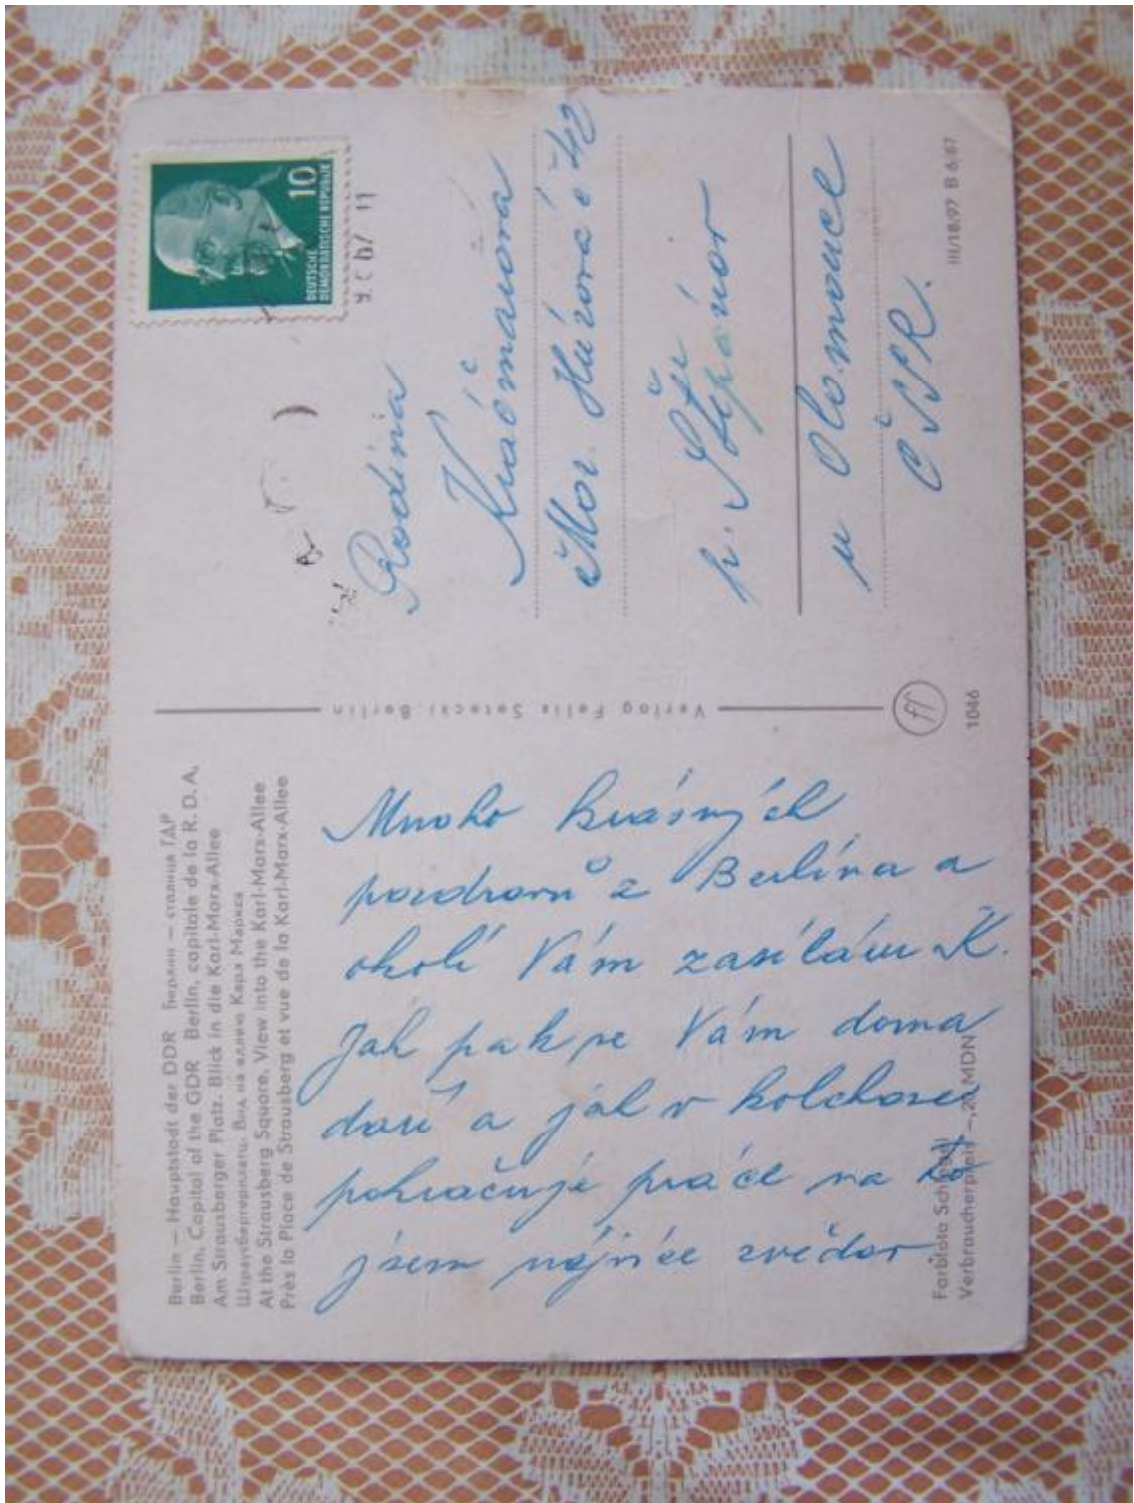 Berlin — Hauptstadt der DDR Берлин — столица ГДР
Berlin, Capital of the GDR Berlin, capitale de la R.D.A.
Am Strausberger Platz. Blick in die Karl-Marx-Allee
Штраусбергерплатц. Вид на аллею Карл Маркса
At the Strausberg Square. View into the Karl-Marx-Allee
Près la Place de Strausberg et vue de la Karl-Marx-Allee
Mnoho krásných
pozdravů z Berlína a
okolí Vám zasílám K.
Jak pak se Vám doma
daří a jak v kolchose
pokračuje práce na to
jsem nejvíce zvědav
Farbfoto
Verbraucherpreis —,20 MDN
Verlag Felix Setecki, Berlin
1046
10
DEUTSCHE
DEMOKRATISCHE REPUBLIK
Rodina
Kvačmanova
Mor. Huzová č 42
p. Šter
u Olomouce
ČSSR.
III/18/97 B 6/67